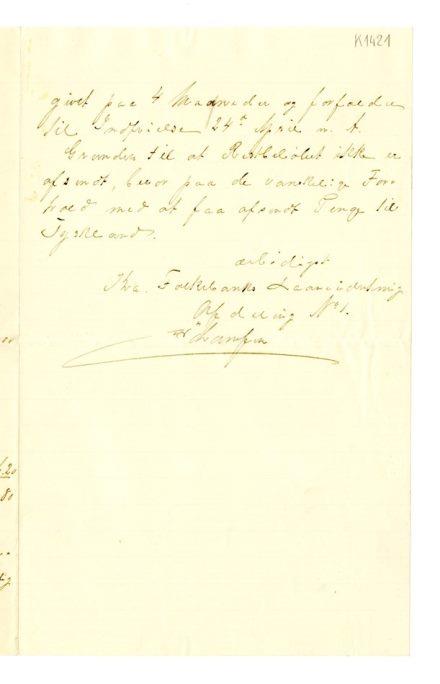 K1421
givet paa 4 Maaneder og forfalder
til Indfrielse 24de April n. A.
Grunden til at Restbeløbet ikke er
afsendt, beror paa de vanskelige For
hold med at faa afsendt Penge til
Tyskland.
ærbødigst
Folkebanks Laaneindretning
Afdeling No 1.
Hansen
6.20
80